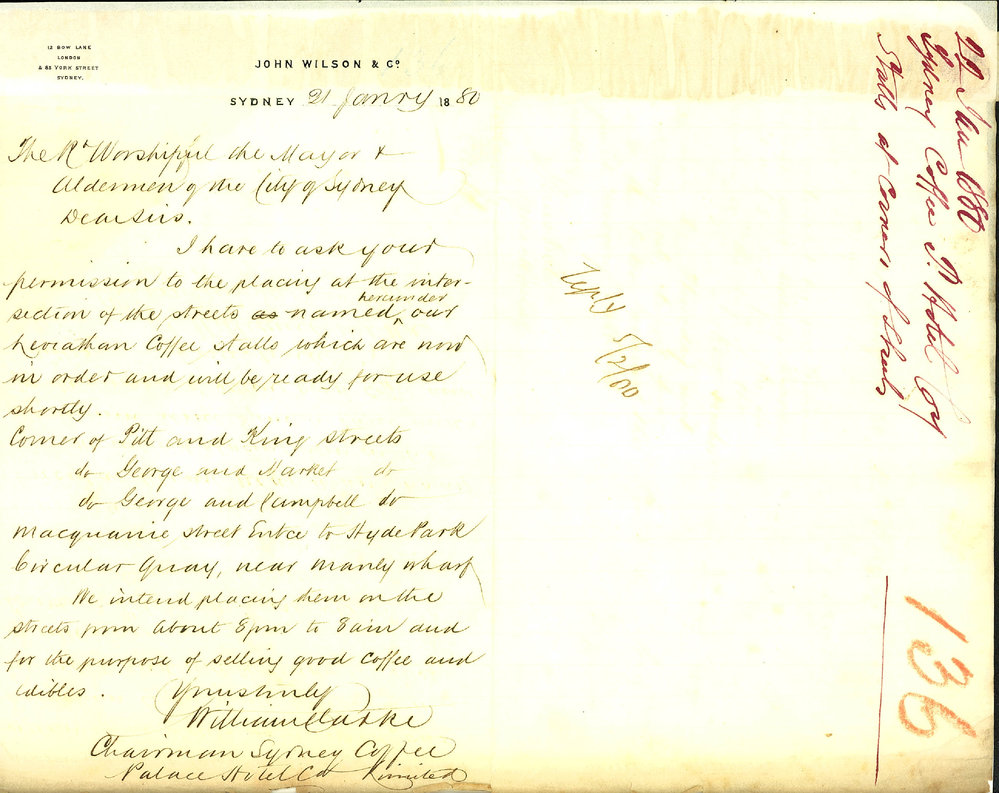 12 BOW LANE
LONDON
& 83 YORK STREET
SYDNEY.
JOHN WILSON & Co.
SYDNEY 21 Janry 1880
The Rt Worshipful the Mayor &
Aldermen of the City of Sydney
Dear Sirs.
I have to ask your
permission to the placing at the inter-
section of the streets as named hereunder, our
Leviathan Coffee Stalls which are now
in order and will be ready for use
shortly.
Corner of Pitt and King streets
do George and Market do
do George and Campbell do
Macquarie street Entce to Hyde Park
Circular Quay, near Manly wharf
We intend placing them on the
streets from about 8pm to 8am and
for the purpose of selling good coffee and
edibles.
Yours truly
William Clarke
Chairman Sydney Coffee
Palace Hotel Co Limited
reply 5/2/80
22 Jan 1880
Sydney Coffee P. Hotel Coy
Stalls at Corners of Streets
136